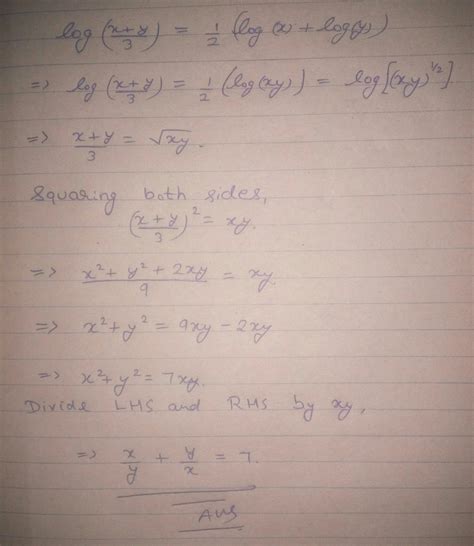 log (x+y/3) = 1/2 (log (x) + log(y))
=> log (x+y/3) = 1/2 (log(xy)) = log[(xy)^1/2]
=> x+y/3 = √xy.
Squaring both sides,
(x+y/3)² = xy.
=> x²+ y² + 2xy/9 = xy.
=> x²+y² = 9xy - 2xy
=> x²+y² = 7xy.
Divide LHS and RHS by xy,
=> x/y + y/x = 7.
Ans